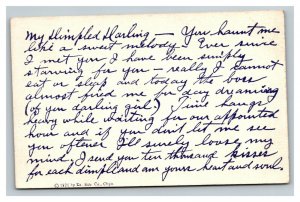 My Dimpled Darling — You haunt me
like a sweet melody. Ever since
I met you I have been simply
starving for you — really I cannot
eat or sleep and today the boss
almost fired me for day dreaming
(of you darling girl). Time hangs
heavy while waiting for our appointed
hour and if you don't let me see
you oftener I'll surely loose my
mind. I send you ten thousand kisses
for each dimple and am your heart and soul.